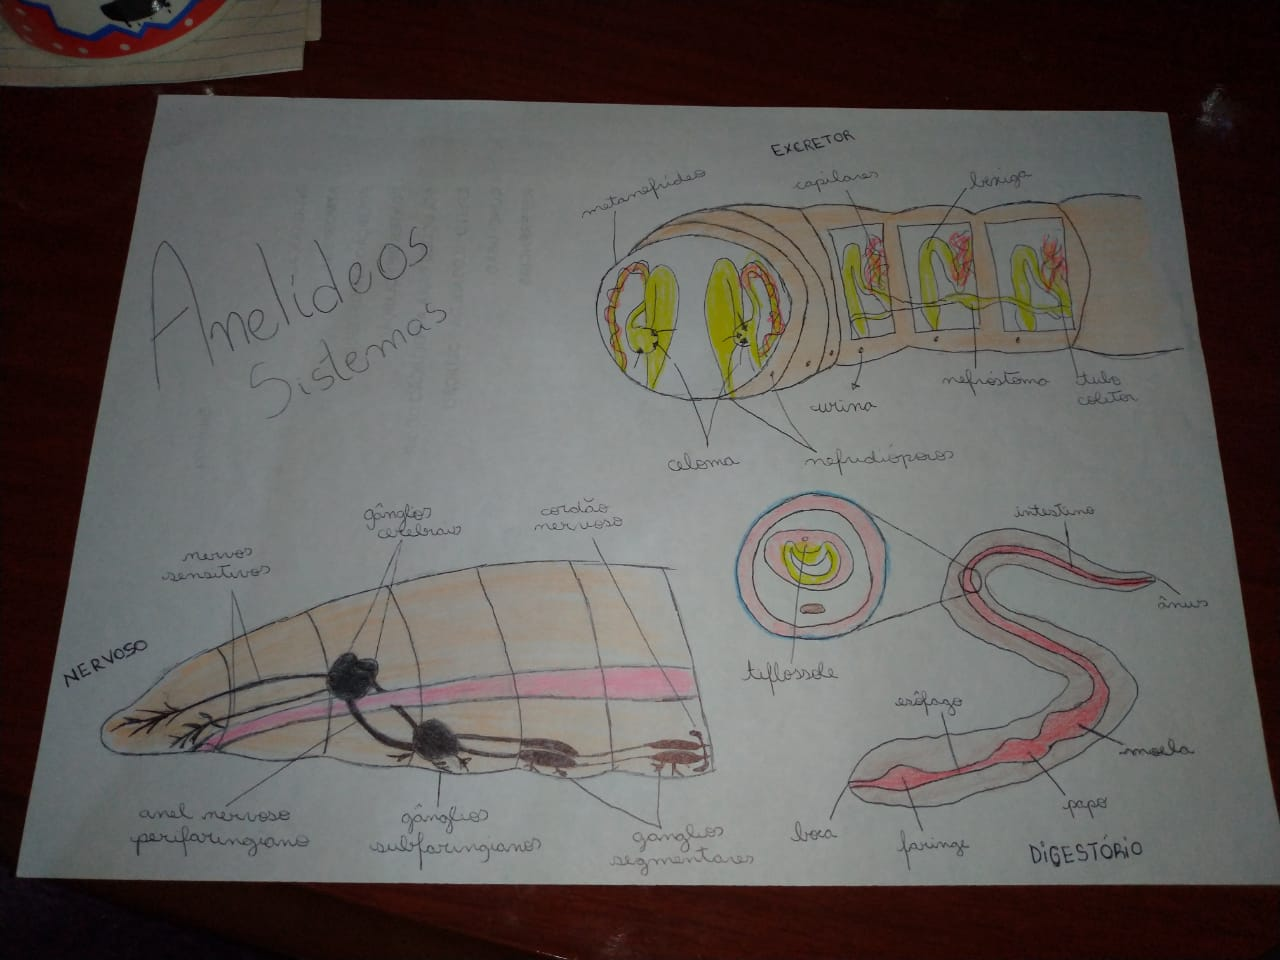 Anelídeos
Sistemas
EXCRETOR
metanefrídeo
capilares
bexiga
urina
nefróstoma
tubo
coletor
celoma
nefridióporos
NERVOSO
nervos
sensitivos
gânglios
cerebrais
cordão
nervoso
anel nervoso
perifaringiano
gânglios
subfaringianos
gânglios
segmentares
tiflossole
intestino
ânus
esôfago
moela
papo
boca
faringe
DIGESTÓRIO